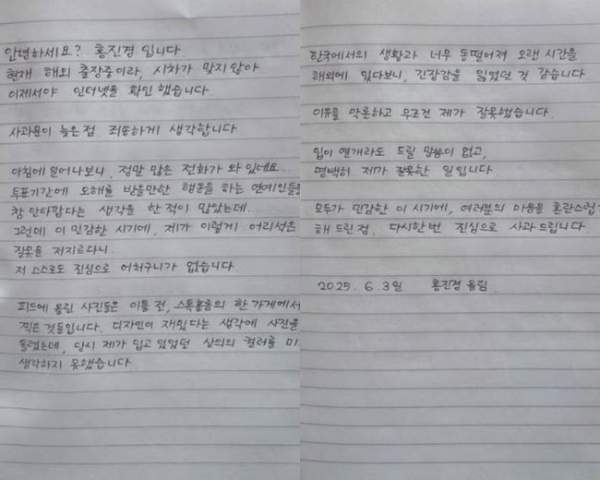 안녕하세요? 홍진경 입니다
현재 해외 출장중이라, 시차가 맞지않아
이제서야 인터넷을 확인 했습니다.
사과문이 늦은점 죄송하게 생각합니다
아침에 일어나보니, 정말 많은 전화가 와 있네요.
투표기간에 오해를 받을만한 행동을 하는 연예인들을
참 안타깝다는 생각을 한 적이 많았는데.
그런데 이 민감한 시기에, 제가 이렇게 어리석은
잘못을 저지르다니.
저 스스로도 진심으로 어처구니가 없습니다.
피드에 올린 사진들은 이틀 전, 스톡홀름의 한 가게에서
찍은 것들입니다. 디자인이 재밌다는 생각에 사진을
올렸는데, 당시 제가 입고 있었던 상의의 컬러를 미
생각하지 못했습니다
한국에서의 생활과 너무 동떨어져 오랜 시간을
해외에 있다보니, 긴장감을 잃었던 것 같습니다
이유를 막론하고 무조건 제가 잘못했습니다.
입이 열개라도 드릴 말씀이 없고,
명백히 제가 잘못한 일입니다
모두가 민감한 이 시기에, 여러분의 마음을 혼란스럽
해 드린 점, 다시한번 진심으로 사과드립니다.
2025. 6. 3일 홍진경 올림.